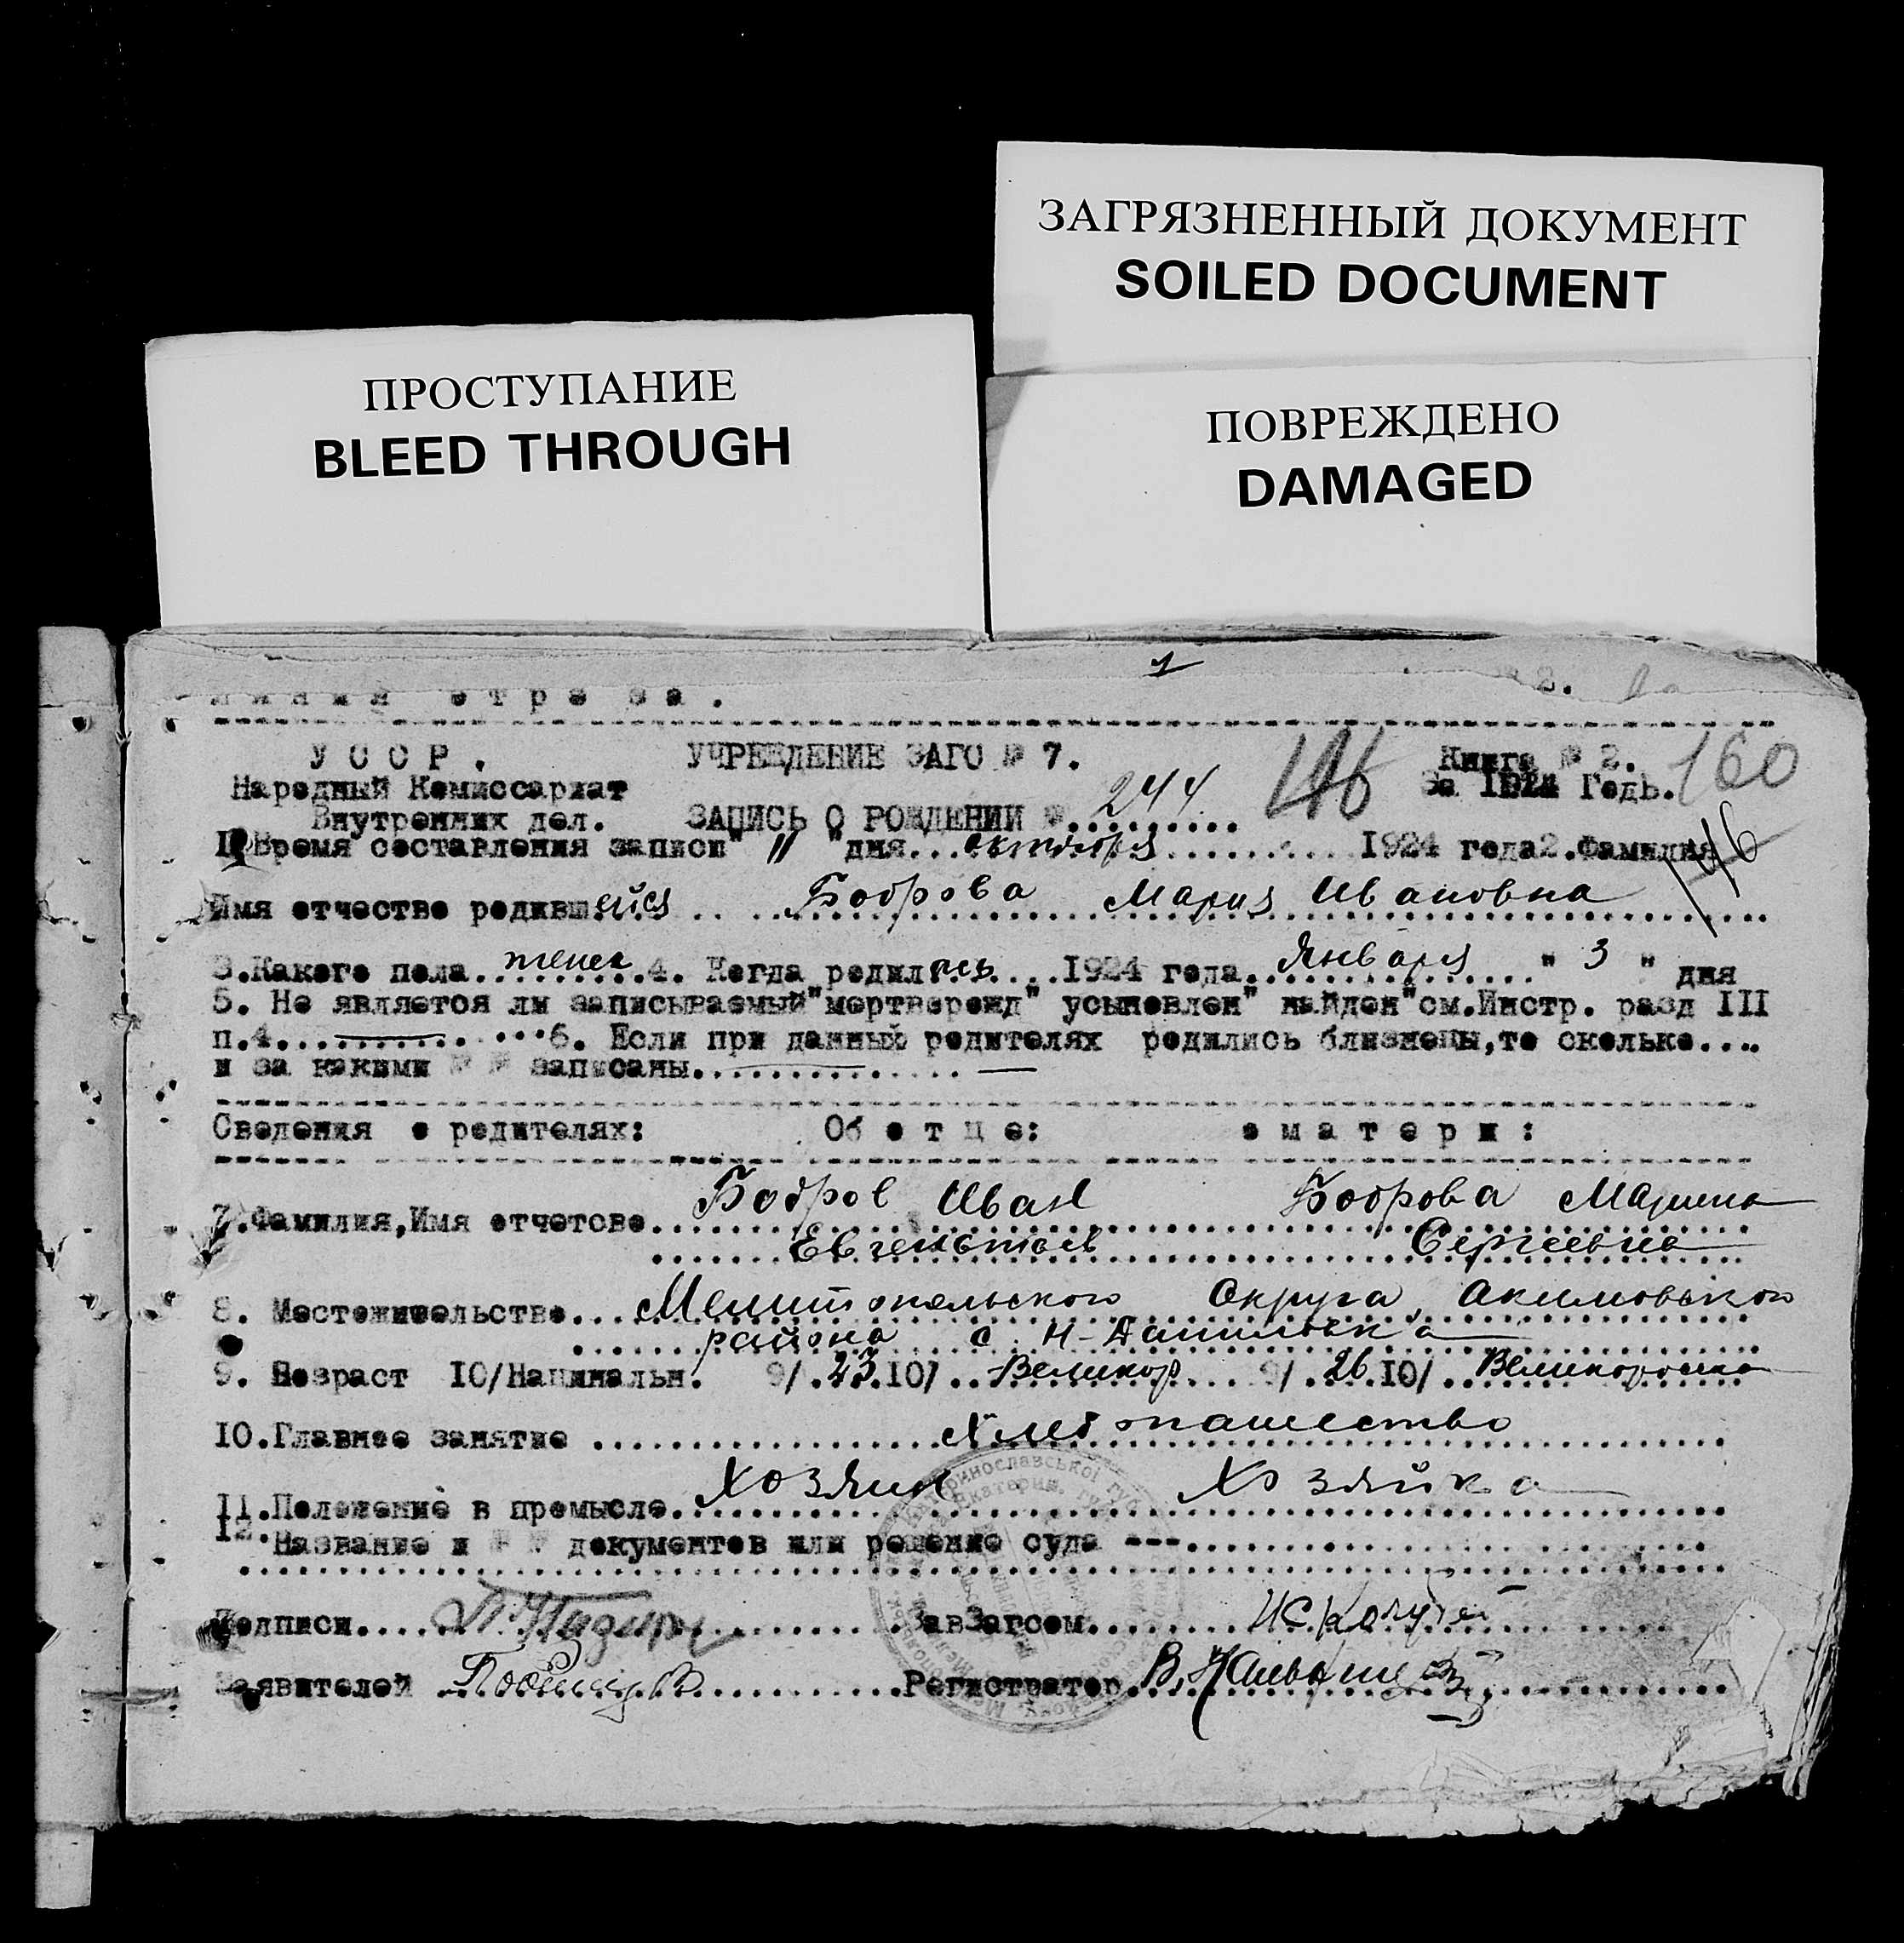 ЗАГРЯЗНЕННЫЙ ДОКУМЕНТ
SOILED DOCUMENT
ПРОСТУПАНИЕ
BLEED THROUGH
ПОВРЕЖДЕНО
DAMAGED
1
Линия отреза.
УССР. УЧРЕЖДЕНИЕ ЗАГС № 7. Книга № 2.
Народный Комиссариат За 1924 Годъ. 160
Внутренних дел. ЗАПИСЬ О РОЖДЕНИИ № 244 146
1. Время составления записи " 11 " дня... октября ... 1924 года 2. Фамилия 146
Имя отчество родившейся .. Боброва Мария Ивановна
3. Какого пола. женск. 4. Когда родилась ... 1924 года. Января " 3 " дня
5. Не является ли записываемый "мертворожд" усыновлен" найден" см. Инстр. разд III
п.4. ... 6. Если при данных родителях родились близнецы, то сколько....
и за какими № № записаны. —
Сведения о родителях: Об отце: о матери:
7. Фамилия, Имя отчетсво... Бобров Иван Боброва Марина
Сергеевна
8. Местожительство... Мелитопольского Округа, Акимовского
района с. Н-Даниловка
9. Возраст 10/Национальн. 9/. 23. 10/.. Великор 9/. 26. 10/. Великоросска
10. Главное занятие ... Хлебопашество
11. Положение в промысле. Хозяин Хозяйка
12. Название и № № документов или решение суда ---
Подписи ... ЗавЗагсом
Заявителей ... Регистратор В.